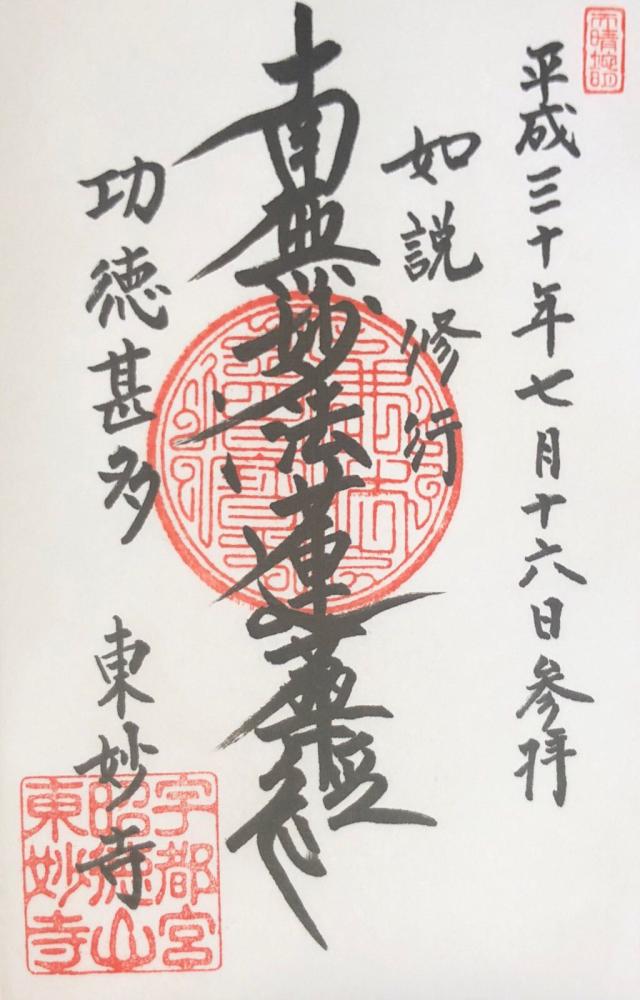 平成三十年七月十六日参拝
如説修行
南無妙法蓮華経
功徳甚多
東妙寺
宇都宮
昭徳山
東妙寺